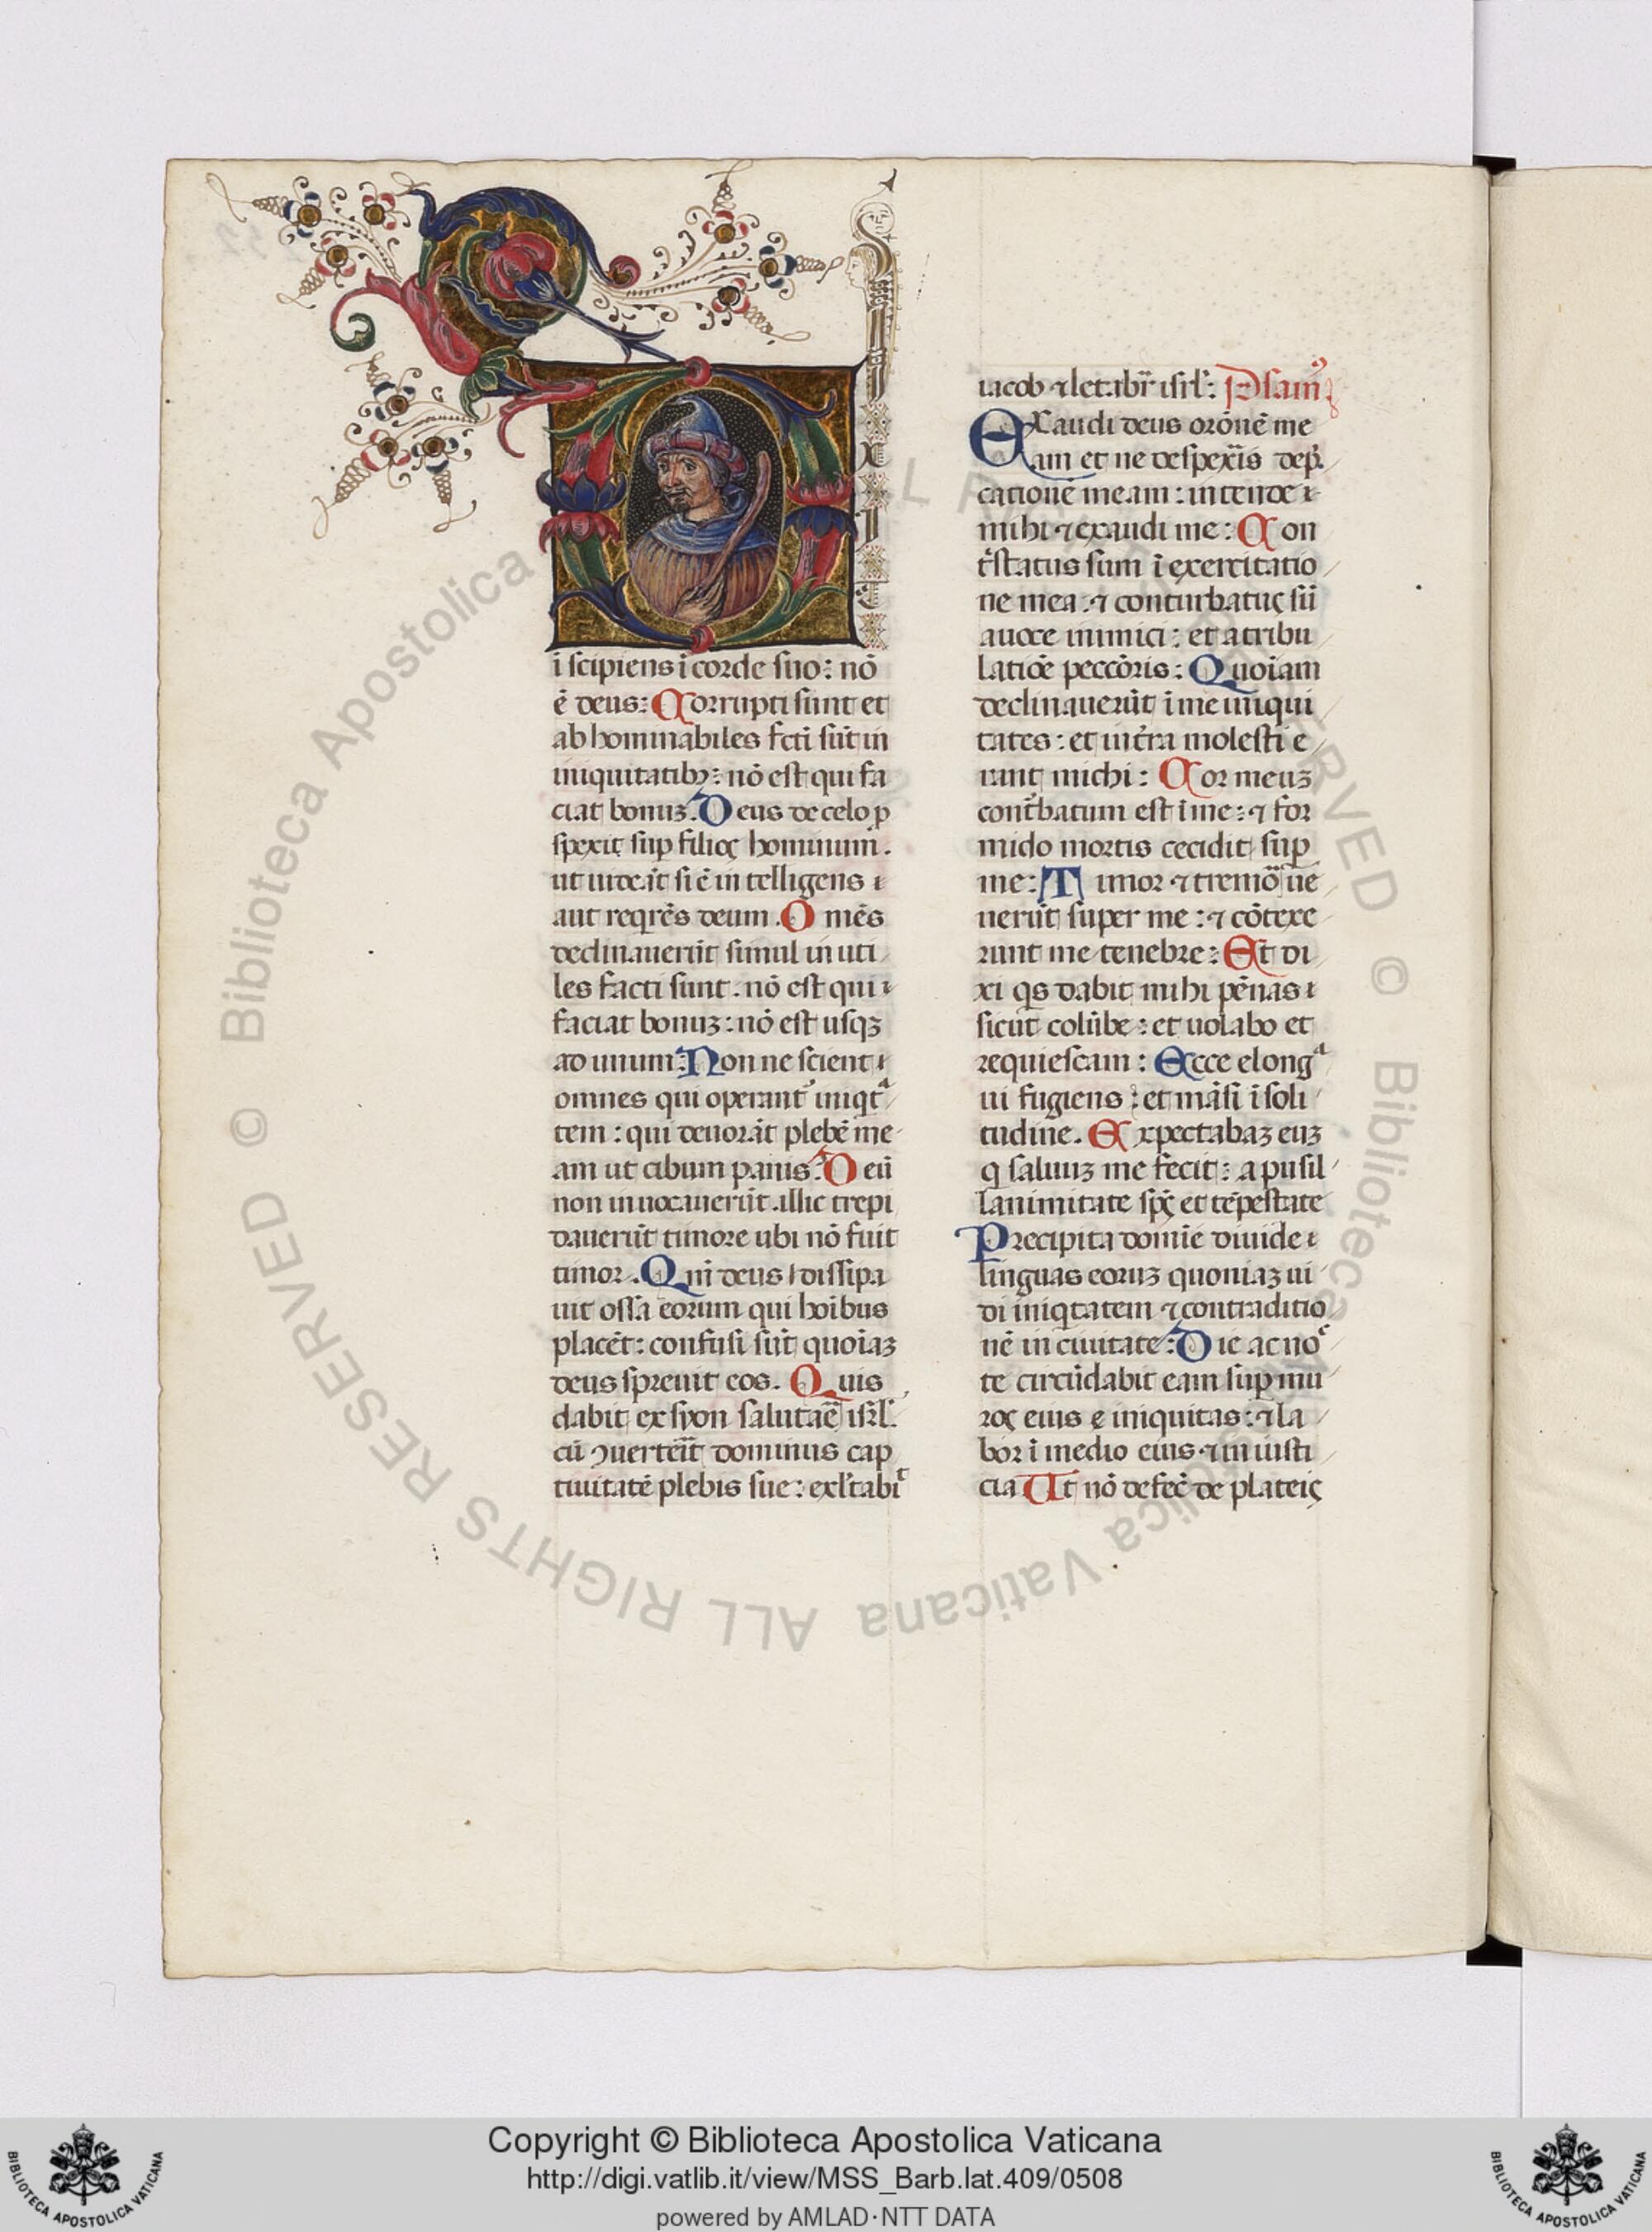 D
I
X
I
T
ĩ scipiens ĩ corde suo: nō
ē deus: Corrupti sunt et
abhominabiles fcti sūt in
iniquitatibꝫ: nō est qui fa
ciat bonuꝫ. Deus de celo ꝓ
spexit suꝑ filios hominum.
ut uideāt si ē intelligens
aut reqrēs deum. Omēs
declinauerūt simul inuti
les facti sunt. nō est qui
faciat bonuꝫ: nō est usqꝫ
ad unum: Nonne scient
omnes qui operant᷑ iniqtᵃ
tem: qui deuorāt plebē me
am ut cibum panis: Deū
non inuocauerūt. illic trepi
dauerūt timore ubi nō fuit
timor. Qm̄ deus dissipa
uit ossa eorum qui hoībus
placēt: confusi sūt quoīaꝫ
deus spreuit eos. Quis
dabit ex syon salutaē isrl̄.
cū ꝯuertēit dominus cap
tiuitatē plebis sue: exl̄tabiᵗ
iacob ⁊ letabr̄ isrl̄: Psamꝰ
EXaudi deus orōnē me
am et ne despexis dep̄
cationē meam: intende
mihi ⁊ exaudi me: Con
tˢstatus sum ĩ exercitatio
ne mea: ⁊ conturbatus sū
auoce inimici: et atribu
latiōe peccōris: Quoīam
declinauerūt ĩ me iniqui
tates: et in ira molesti e
rant michi: Cor meuꝫ
contˢbatum est ĩ me: ⁊ for
mido mortis cecidit suꝑ
me: Timor ⁊ tremōr ue
nerūt super me: ⁊ cōtexe
runt me tenebre: Et di
xi qs dabit mihi pēnas
sicut colūbe: et uolabo et
requiescam: Ecce elongᵃ
ui fugiens: et māsi ĩ soli
tudine. Expectabaꝫ euꝫ
q saluuꝫ me fecit: a pusil
lanimitate spc̄ et tēpestate
Precipita domīe diuide
linguas eoruꝫ quoniaꝫ ui
di iniqtatem ⁊ contraditio
nē in ciuitate: Die ac noᶜ
te circūdabit eam suꝑ mu
ros eius e iniquitas: ⁊ la
bor ĩ medio eius ⁊ iniusti
cia Et nō defec̄ de plateis
© Biblioteca Apostolica Vaticana ALL RIGHTS RESERVED
© Biblioteca Apostolica Vaticana ALL RIGHTS RESERVED
Copyright © Biblioteca Apostolica Vaticana
http://digi.vatlib.it/view/MSS_Barb.lat.409/0508
powered by AMLAD·NTT DATA
BIBLIOTECA APOSTOLICA VATICANA
BIBLIOTECA APOSTOLICA VATICANA